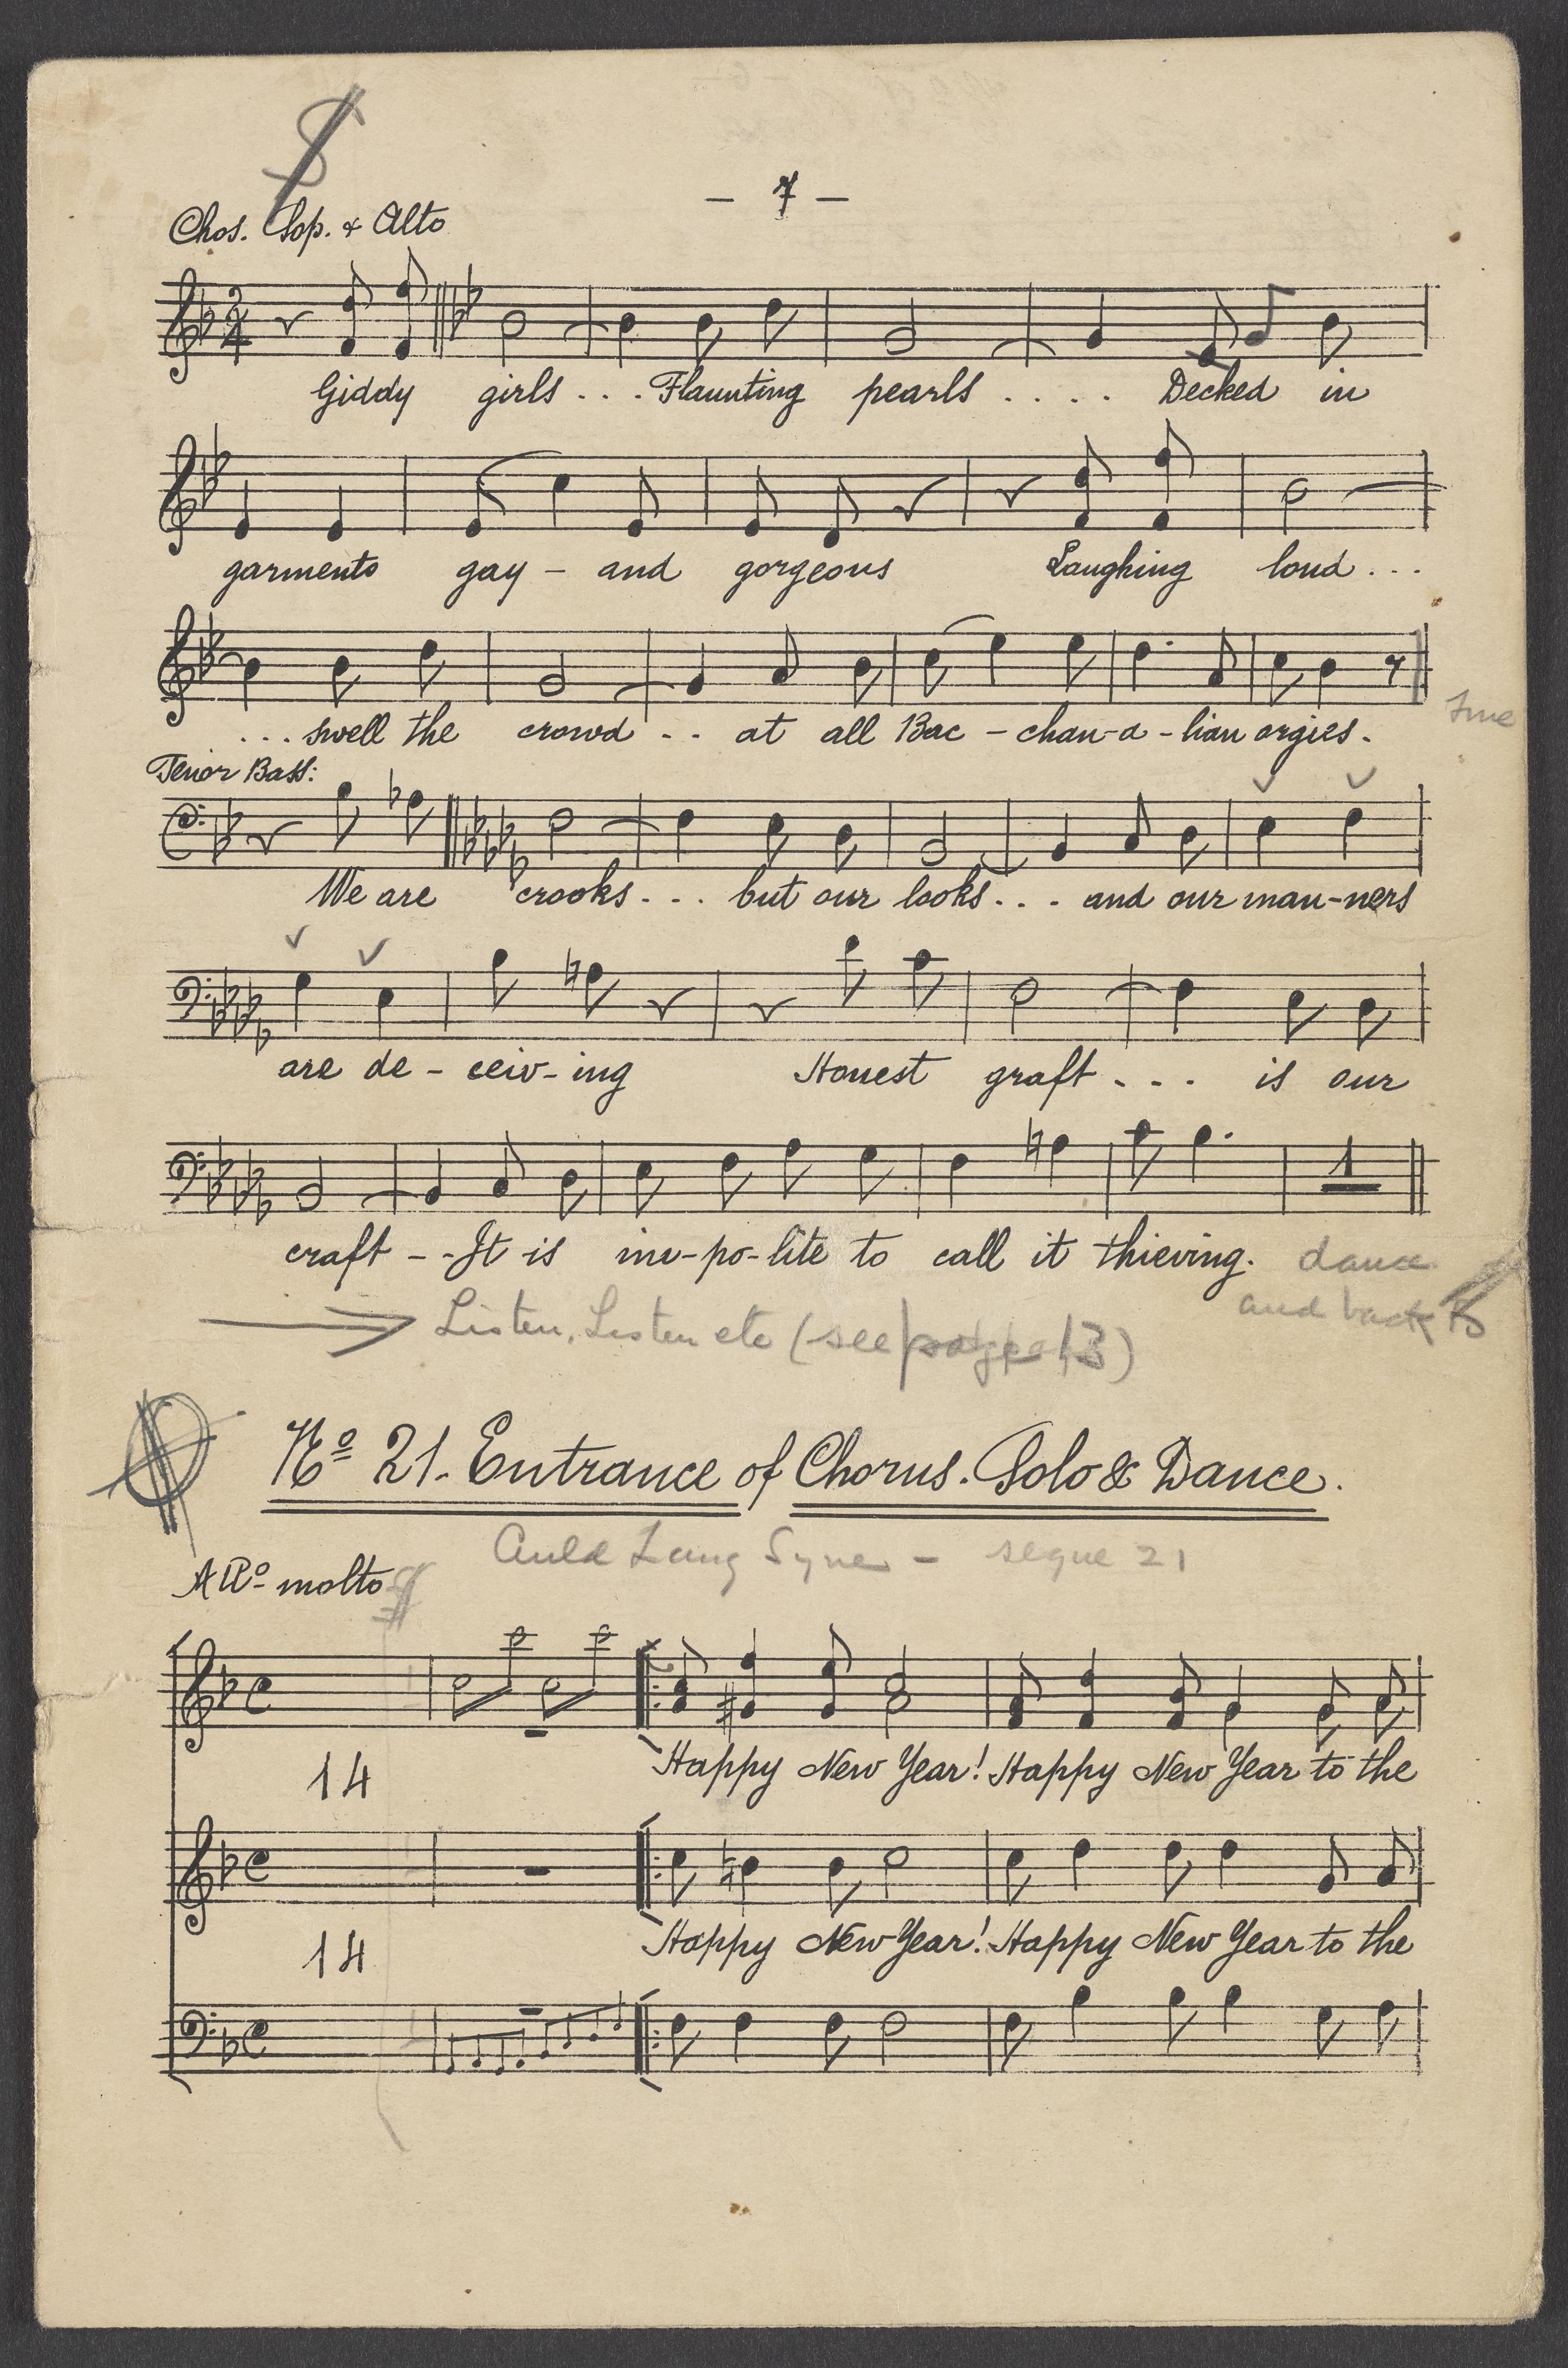 - 7 -
Chos. Sop. & Alto
Giddy girls . . . Flaunting pearls . . . . Decked in
garments gay - and gorgeous Laughing loud . . .
. . . swell the crowd . . at all Bac - chan-a - lian orgies.
Tenor Bass:
We are crooks . . . but our looks . . . and our man-ners
are de - ceiv - ing Honest graft . . . is our
1
craft - - It is im-po-lite to call it thieving. dance
and back to
Listen, Listen etc (see page 13)
No 21. Entrance of Chorus. Solo & Dance.
Auld Lang Syne - segue 21
Allo molto
14 Happy New Year! Happy New Year to the
14 Happy New Year! Happy New Year to the